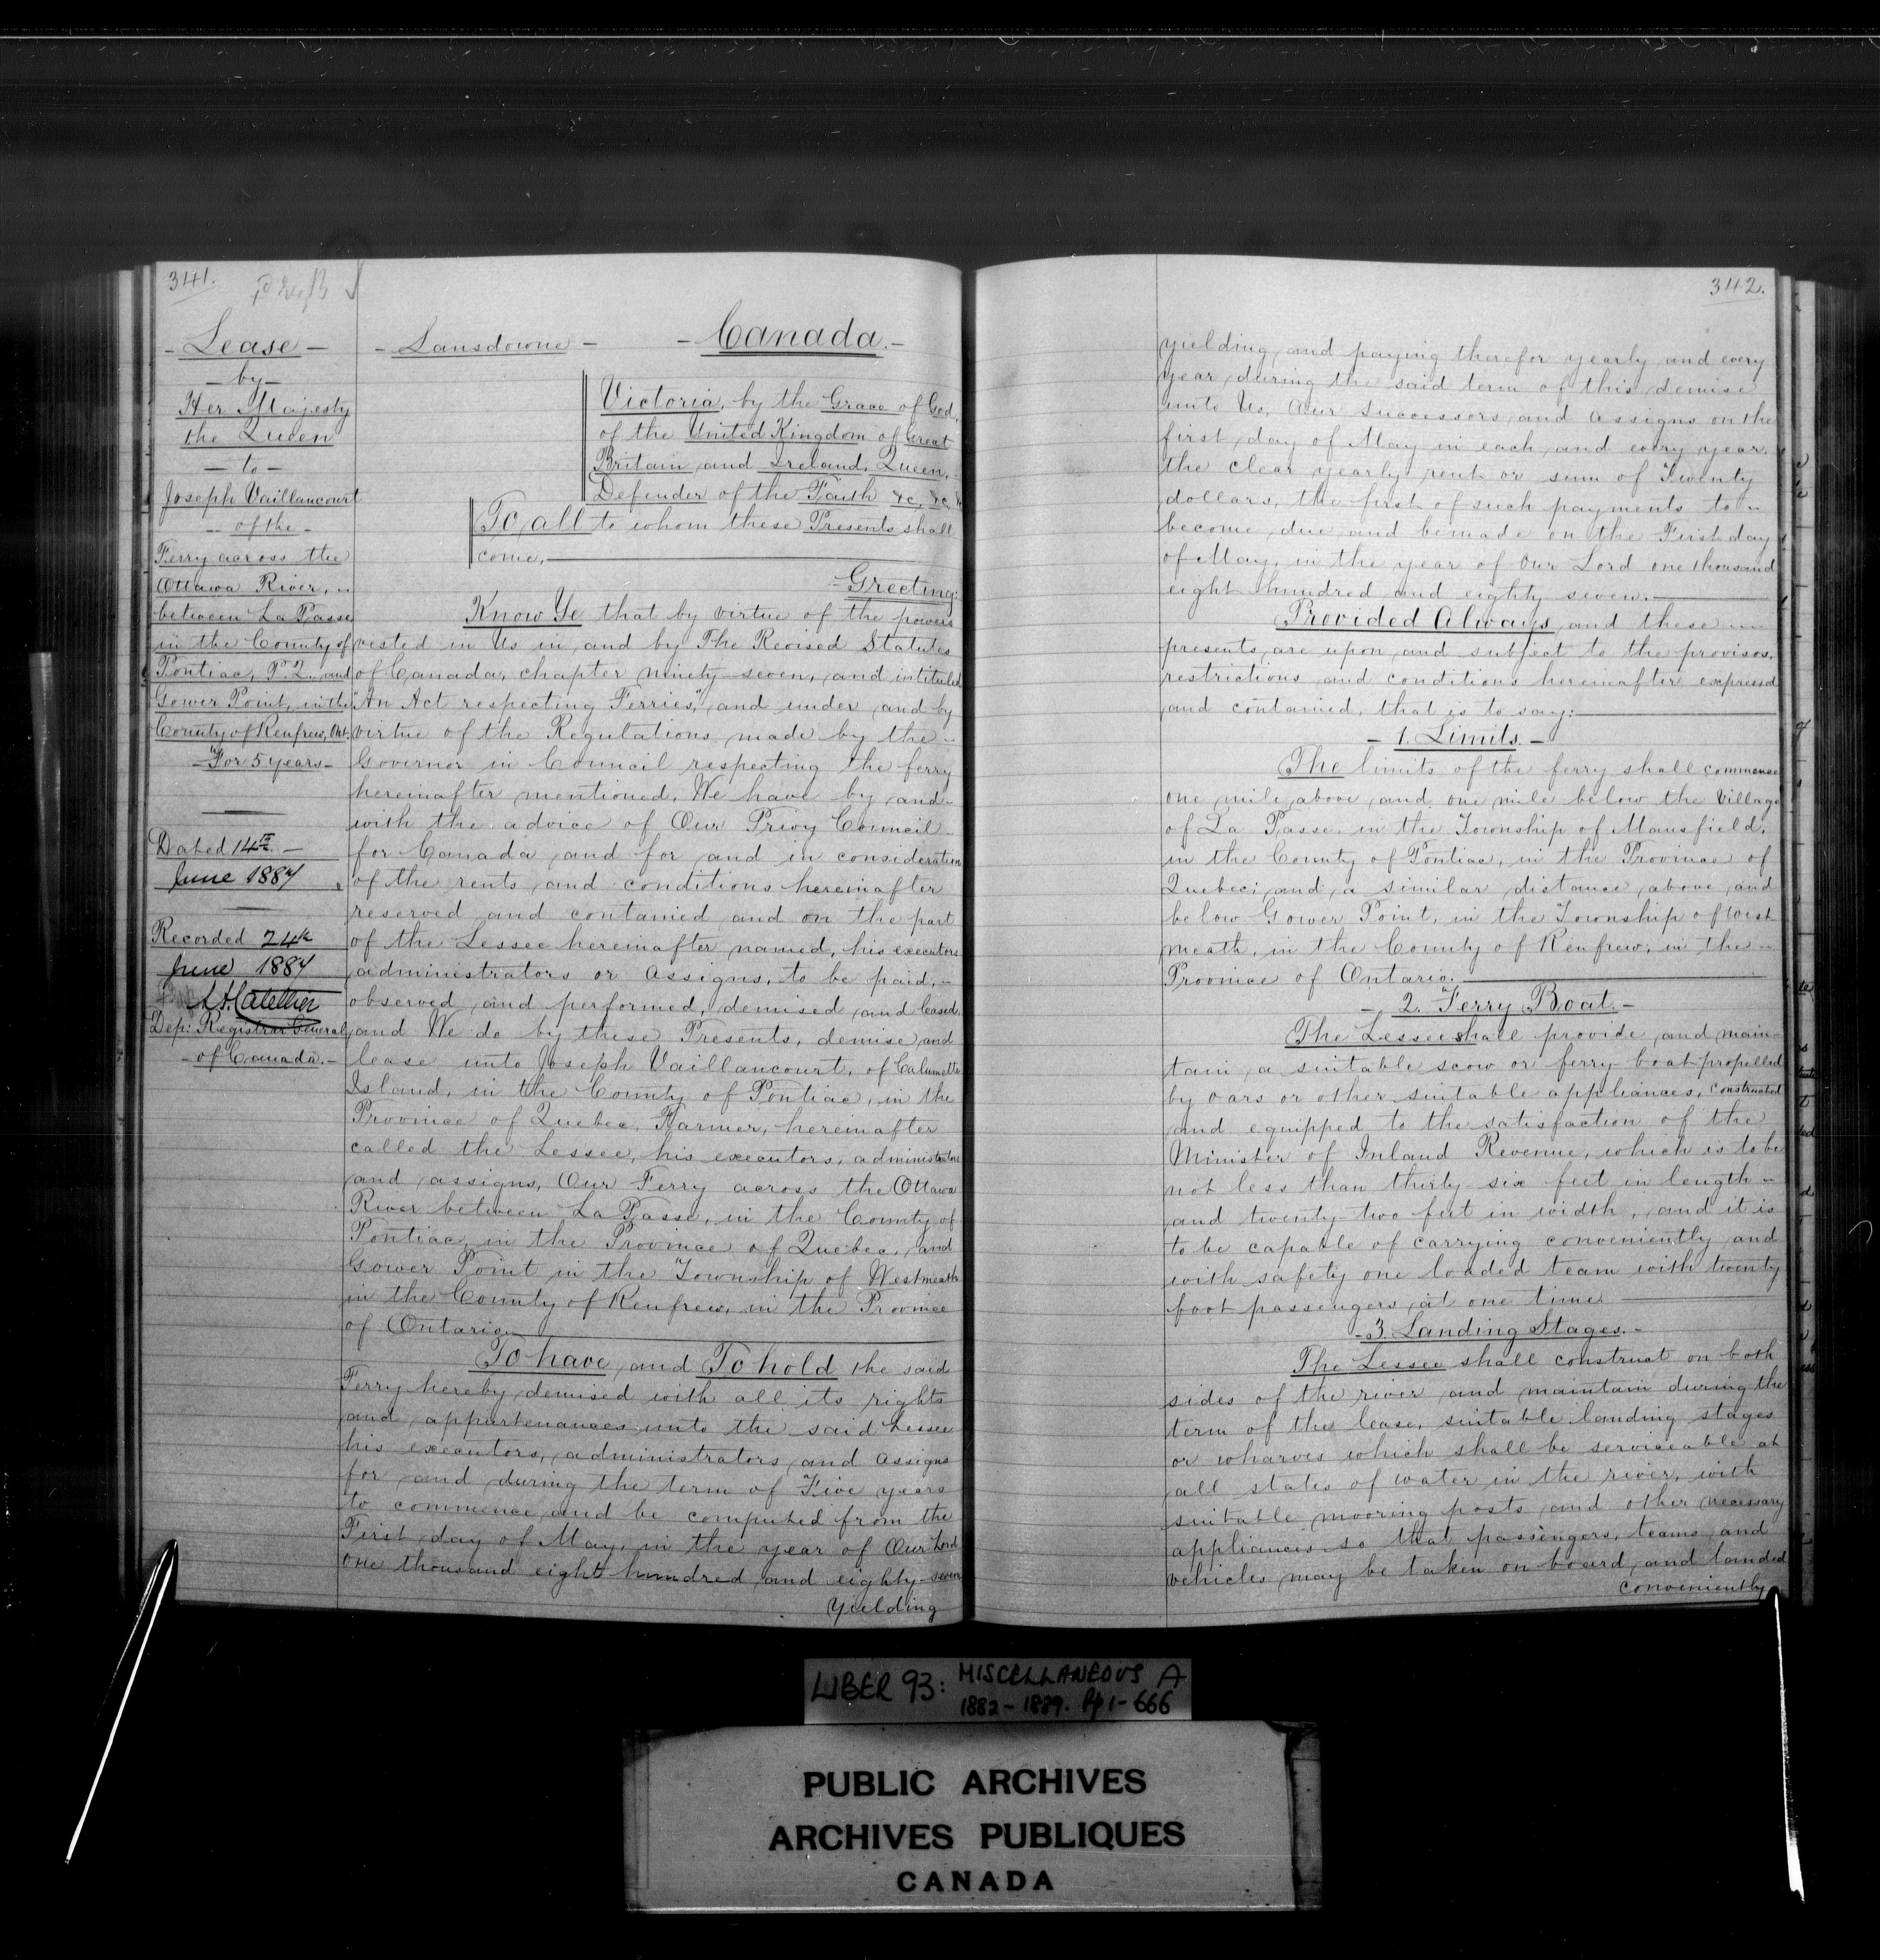 341.
- Lease -
- by -
Her Majesty
the Queen
- to -
Joseph Vaillancourt
- of the -
Ferry across the
Ottawa River, -
between La Passe
in the County of
Pontiac, P.Q. and
Gower Point, in the
County of Renfrew, Ont.
- For 5 years -
Dated 14th -
June 1887
Recorded 24th
June 1887
Dep: Registrar General
- of Canada. -
- Lansdowne -
- Canada. -
Victoria, by the Grace of God,
of the United Kingdom of Great
Britain and Ireland, Queen, -
Defender of the Faith &c, &c,
To all to whom these Presents shall
come,
- Greeting:
Know Ye that by virtue of the powers
vested in Us in and by The Revised Statutes
of Canada, chapter ninety-seven, and intituled
"An Act respecting Ferries," and under and by
virtue of the Regulations made by the -
Governor in Council respecting the ferry
hereinafter mentioned, We have by and -
with the advice of Our Privy Council -
for Canada and for and in consideration
of the rents and conditions hereinafter
reserved and contained and on the part
of the Lessee hereinafter named, his executors
administrators or assigns, to be paid, -
observed and performed, demised and leased,
and We do by these Presents, demise and
lease unto Joseph Vaillancourt, of Calumette
Island, in the County of Pontiac, in the
Province of Quebec, Farmer, hereinafter
called the Lessee, his executors, administrators
and assigns, Our Ferry across the Ottawa
River between La Passe, in the County of
Pontiac, in the Province of Quebec, and
Gower Point in the Township of Westmeath
in the County of Renfrew, in the Province
of Ontario.
To have and To hold the said
Ferry hereby demised with all its rights
and appurtenances unto the said Lessee
his executors, administrators and assigns
for and during the term of Five years
to commence and be computed from the
First day of May, in the year of Our Lord
one thousand eight hundred and eighty-seven
Yielding
342.
yielding and paying therefor yearly and every
year during the said term of this demise
unto Us, Our Successors and Assigns on the
first day of May in each and every year
the clear yearly rent or sum of Twenty
dollars, the first of such payments to -
become due and be made on the First day
of May, in the year of Our Lord one thousand
eight hundred and eighty seven.
Provided Always, and these -
presents are upon and subject to the provisos,
restrictions and conditions hereinafter expressed
and contained, that is to say:
- 1. Limits. -
The limits of the ferry shall commence
one mile above and one mile below the Village
of La Passe, in the Township of Mansfield,
in the County of Pontiac, in the Province of
Quebec; and a similar distance above and
below Gower Point, in the Township of West
meath, in the County of Renfrew, in the -
Province of Ontario.
- 2. Ferry Boat. -
The Lessee shall provide and main-
tain a suitable scow or ferry boat propelled
by oars or other suitable appliances, constructed
and equipped to the satisfaction of the
Minister of Inland Revenue, which is to be
not less than thirty six feet in length -
and twenty-two feet in width, and it is
to be capable of carrying conveniently and
with safety one loaded team with twenty
foot passengers at one time.
- 3. Landing Stages. -
The Lessee shall construct on both
sides of the river and maintain during the
term of the lease, suitable landing stages
or wharves which shall be serviceable at
all states of water in the river, with
suitable mooring posts and other necessary
appliances so that passengers, teams and
vehicles may be taken on board and landed
conveniently
LIBER 93: MISCELLANEOUS A
1882-1889. Pp 1-666
PUBLIC ARCHIVES
ARCHIVES PUBLIQUES
CANADA